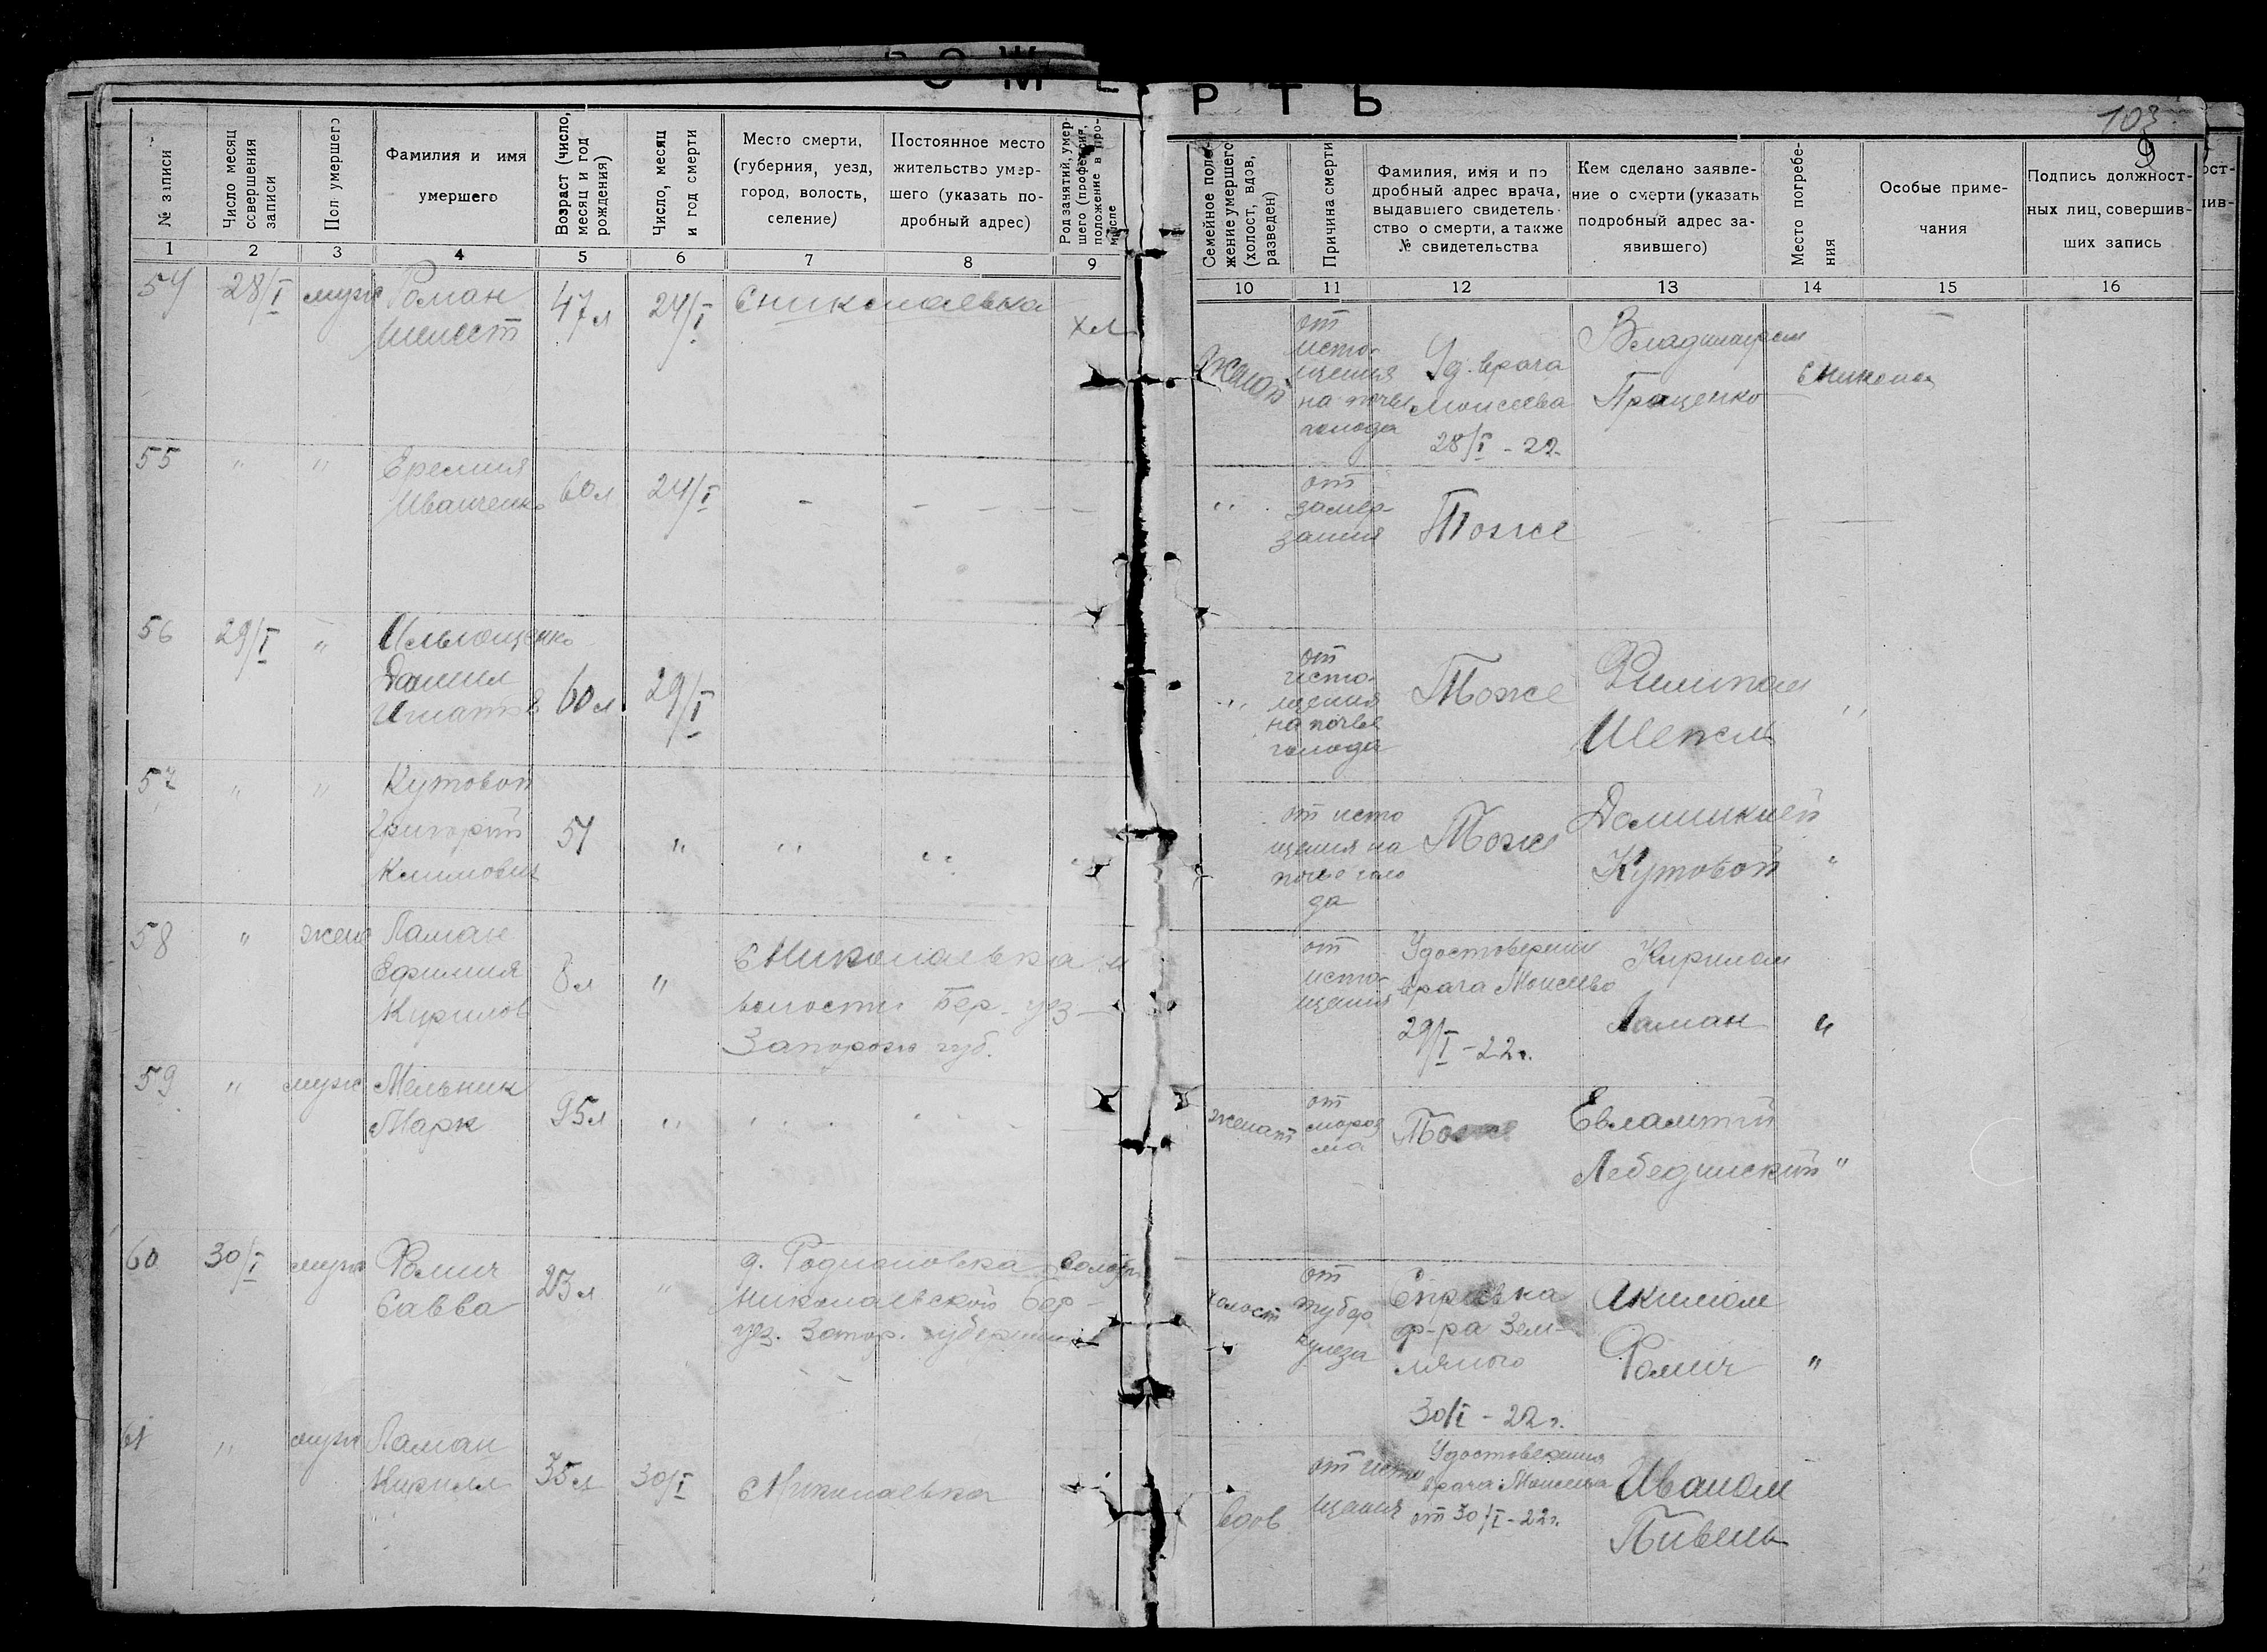 СМЕРТЬ
103
9
№ записи
Число месяц совершения записи
Пол умершего
Фамилия и имя умершего
Возраст (число, месяц и год рождения)
Число, месяц и год смерти
Место смерти, (губерния, уезд, город, волость, селение)
Постоянное место жительство умершего (указать подробный адрес)
Род занятий, умершего (профессия, положение в промысле
Семейное положение умершего (холост, вдов, разведен)
Причина смерти
Фамилия, имя и подробный адрес врача, выдавшего свидетельство о смерти, а также № свидетельства
Кем сделано заявление о смерти (указать подробный адрес заявившего)
Место погребения
Особые примечания
Подпись должностных лиц, совершивших запись
1 2 3 4 5 6 7 8 9 10 11 12 13 14 15 16
54 28/I муж Роман
Шелест
47 л 24/I с Николаевка хл
женат
от
исто-
щения
на почве
голода
Уд. врача
Моисеева
28/I - 22
Владимиром
Проценко
с Никола
55 " " Еремия
Иванченко
60 л 24/I - - - - -
" от
замер-
зания
Тоже
56 29/I " Ильющенко
Даниил
Игнатов
60 л 29/I
" от
исто-
щения
на почве
голода
Тоже
Филипом
Шепель
"
57 " " Кутовой
Григорий
Климович
57 " " " "
от исто
щения на
почве голо
да
Тоже
Доминикией
Кутовой "
58 " женс Ламан
Ефимия
Кирилов
8 л " с Николаевка и
волости Бер. уез
Запорож губ.
от
исто-
щения
Удостоверение
врача Моисеево
29/I - 22 г.
Кирилом
Ламан "
59 " муж Мельник
Марк
95 л " " "
женат
от
мороз
ма
Тоже
Евлампий
Лебединский "
60 30/I муж Фомич
Савва
23 л " д. Родионовка волости
Николаевской Бер-
уез. Запор. губернии
холост
от
тубер
кулеза
Справка
д-ра Зем-
ляного
30/I - 22 г.
Акимом
Фомич "
61 " муж Ламан
Кирилл
35 л 30/I с Николаевка
вдов
от исто
щения
Удостоверения
врача Моисеева
от 30/I - 22 г.
Иваном
Пивень